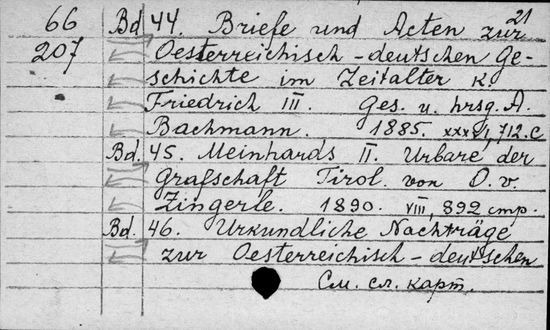 21
66 Bd 44. Briefe und Acten zur
207 Oesterreichisch-deutschen Ge-
schichte im Zeitalter K.
Friedrich III. Ges. u. hrsg. A.
Bachmann. 1885. 712.c
Bd. 45. Meinhards II. Urbare der
Grafschaft Tirol. von O. v.
Zingerle. 1890. VIII, 892 стр.
Bd. 46. Urkundliche Nachträge
zur Oesterreichisch-deutschen
См. сл. карт.